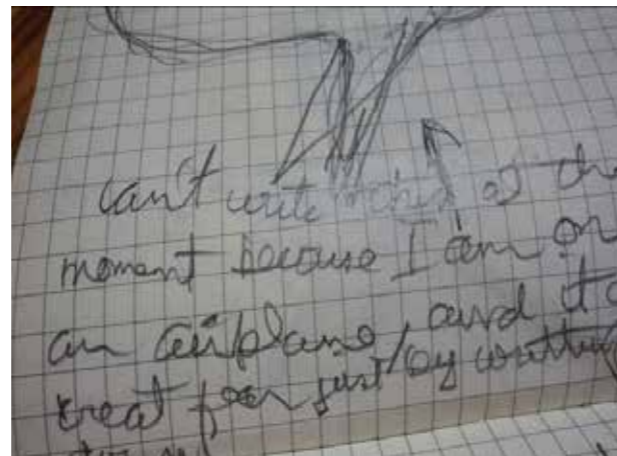 can't write in this at the
moment because I am on
an airplane, and it
creat fear just by writting